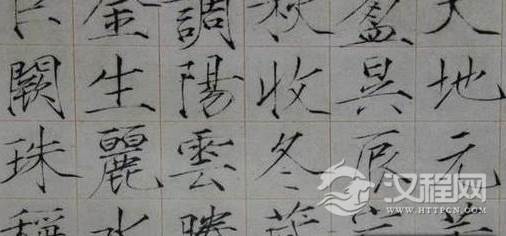 天地元黃
盈昃辰宿
秋收冬藏
調陽雲騰
金生麗水
巨闕珠稱
汉程网
WWW.HTTPCN.COM